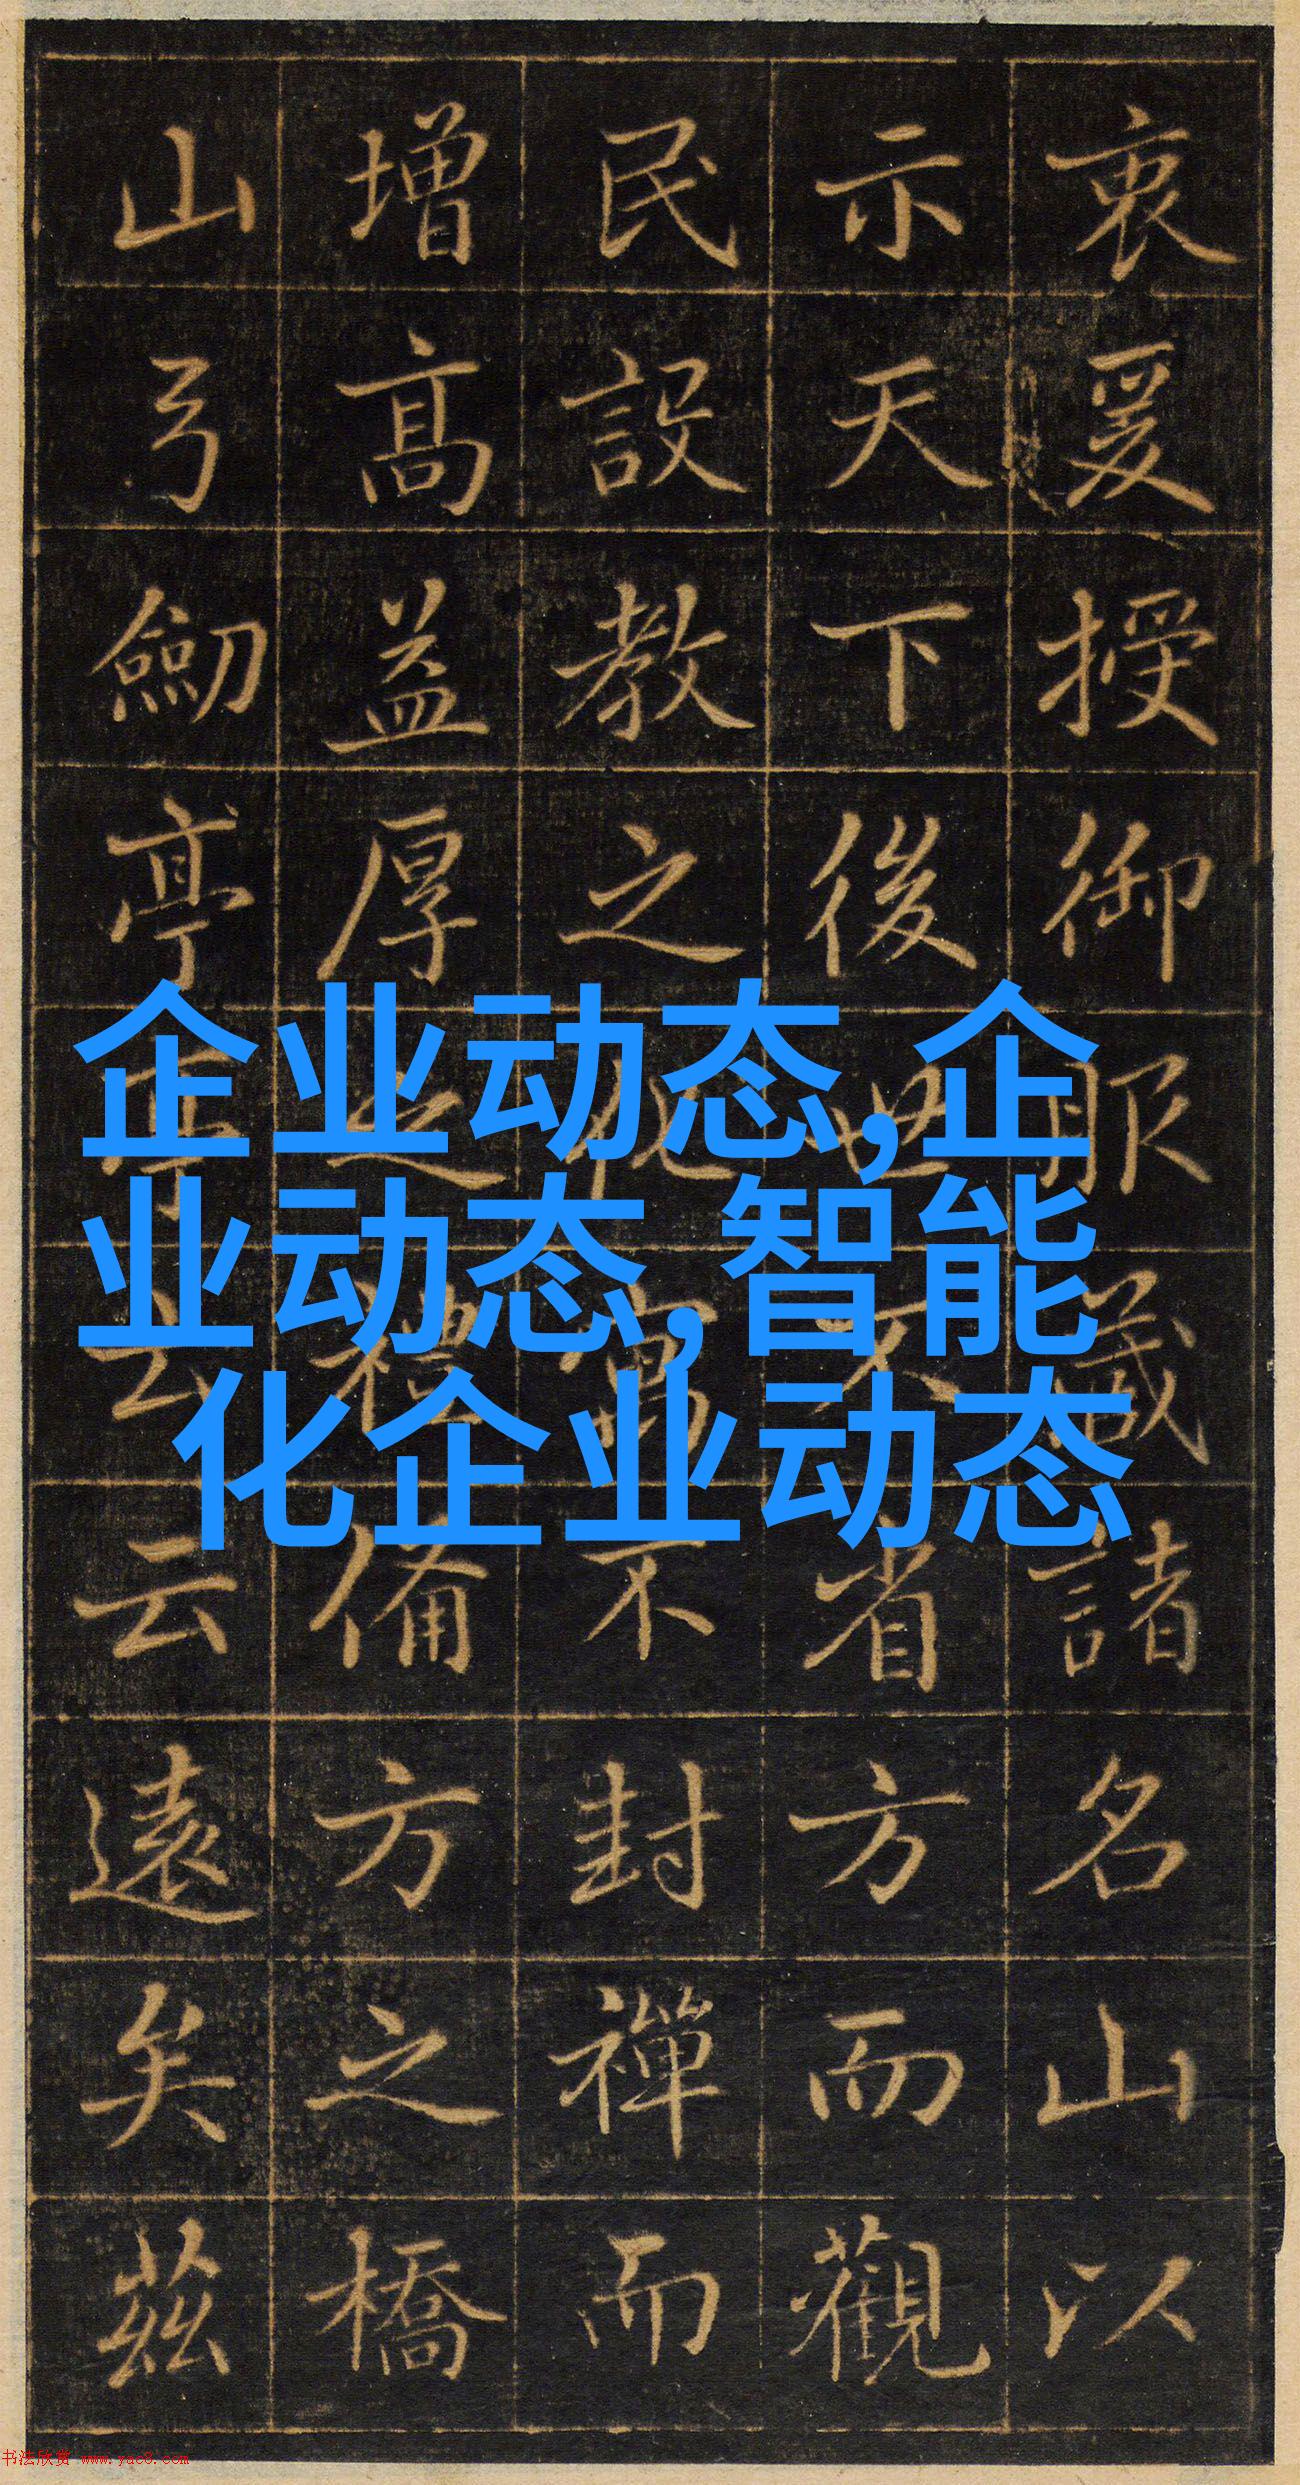 衷爰授御服藏諸名山以
示天下後世不省方而觀
民設教之化寓不封禪而
增高益厚之禮備方之橋
山弓劒亭亭云云遠矣茲
企业动态,企
业动态,智能
化企业动态
书法欣赏 www.yac8.com